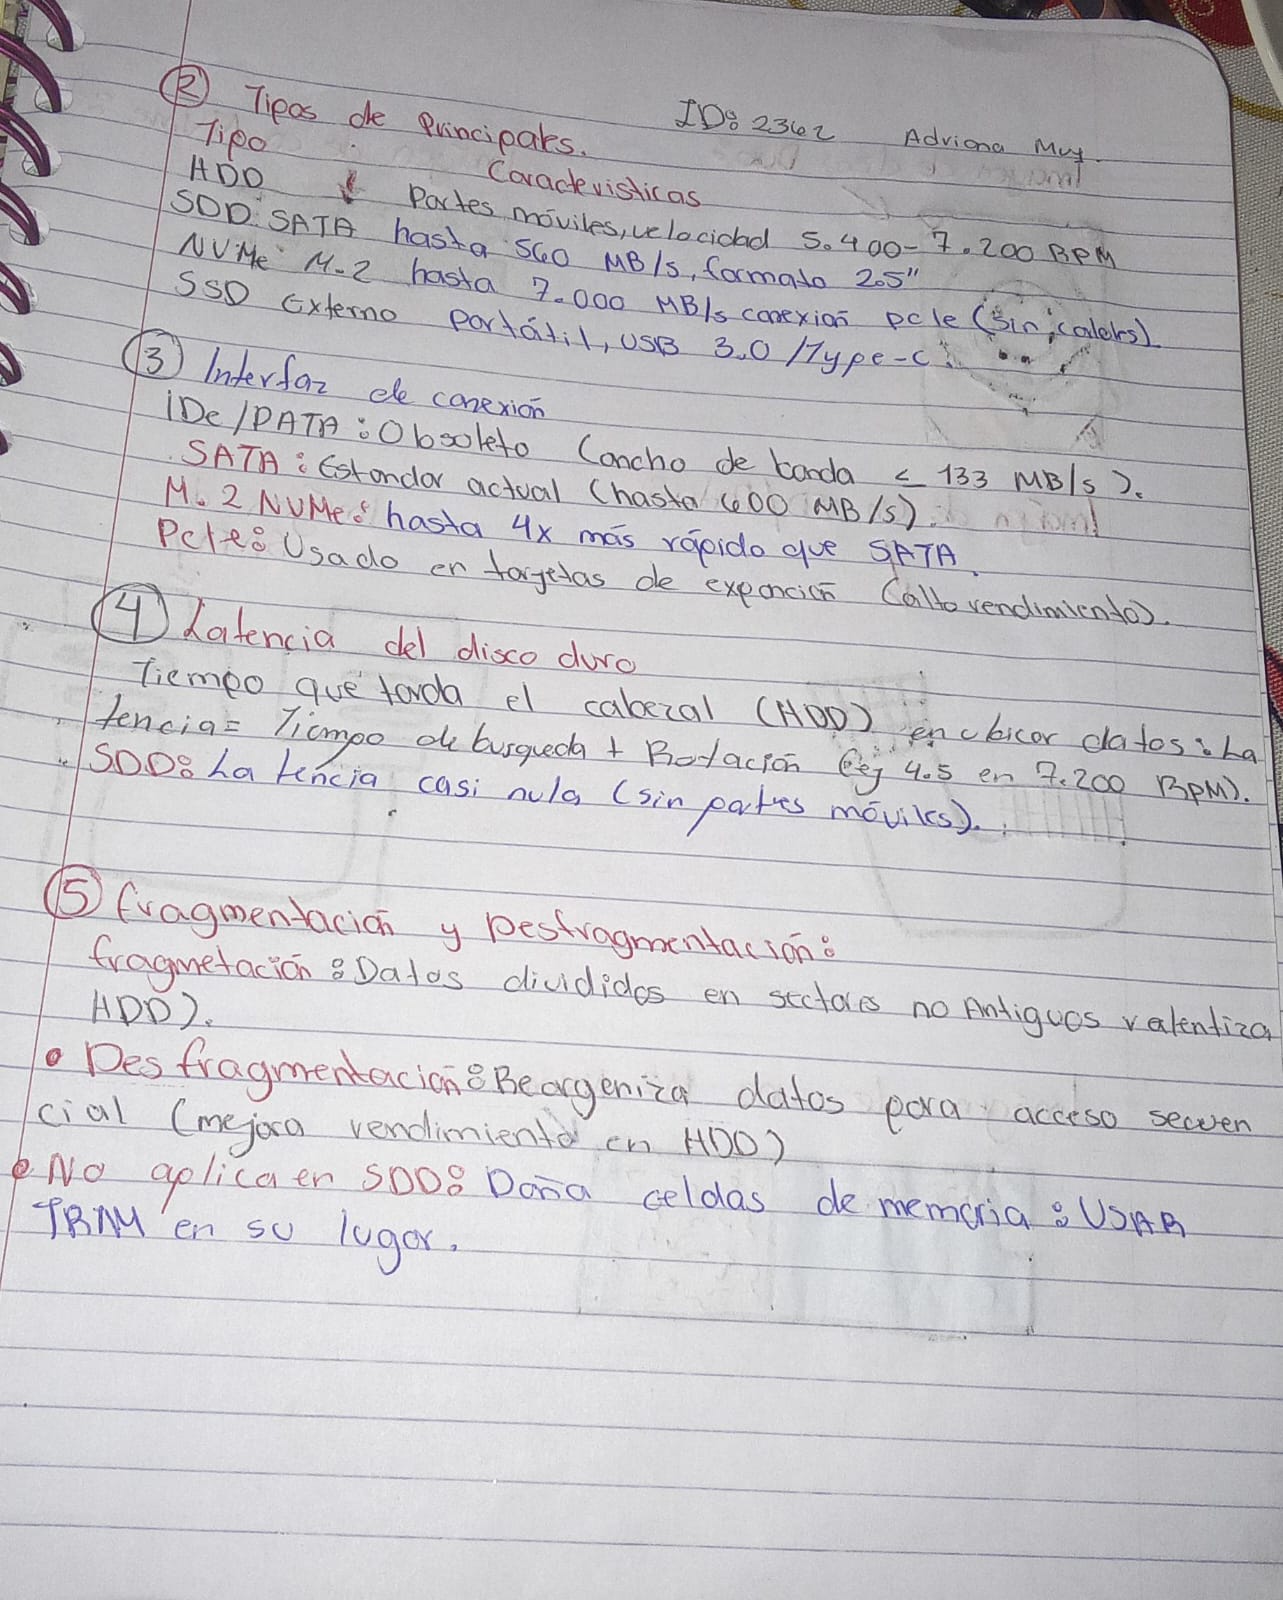 ② Tipos de Principales.
ID: 2362 Adriana Muy.
Tipo Caracteristicas
HDD Partes móviles, velocidad 5.400-7.200 RPM
SDD: SATA hasta 560 MB/s, formato 2.5"
NVMe M.2 hasta 7.000 MB/s conexión pcle (sin cables)
SSD Externo portátil, USB 3.0 /Type-C.
③ Interfaz de conexión
IDe/PATA: Obsoleto (ancho de banda < 133 MB/s).
SATA: Estandar actual (hasta 600 MB/s).
M.2 NVMe: hasta 4x más rápido que SATA.
Pcle: Usado en targetas de expancición (alto rendimiento).
④ Latencia del disco duro
Tiempo que tarda el cabezal (HDD) en ubicar datos: La
tencia = Tiempo de busqueda + Rotación (ej 4.5 en 7.200 RPM).
SDD: La tencia casi nula (sin partes móviles).
⑤ fragmentación y Desfragmentación:
fragmetación: Datos divididos en sectores no Antiguos ralentiza
HDD).
• Des fragmentación: Reorgeniza datos para acceso secuen
cial (mejora rendimiento en HDD)
• No aplica en SDD: Daña celdas de memoria: USAR
TRIM en su lugar.